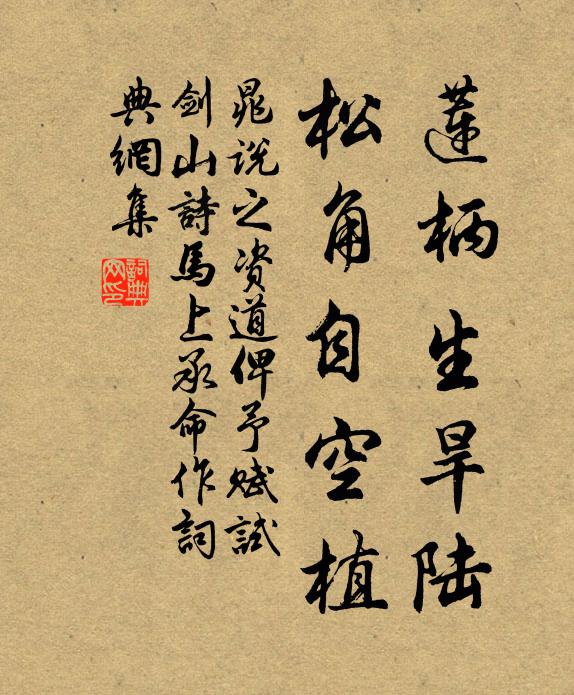 蓮柄生旱陆
松角自空植
晁说之资道俾予赋試
剑山詩馬上承命作詞
典網集
詞典网印